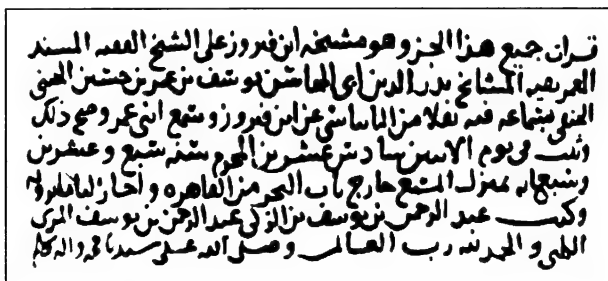 قرات جميع هذا الجزو وهو مشيخه ابن فيروز على الشيخ الفقيه المسند
المعمر بقيه المشايخ بدر الدين ابي المحاسن يوسف بن عمر بن حسين الختني
الحنفي بسماعه فيه نقلا من عن ابن فيروز وسمع ابني عمر وصح ذلك
وثبت في يوم الاثنين سادس عشرين المحرم سنه سبع وعشرين
وسبعمايه بمنزل المسمع خارج باب البحر من القاهره واجاز لنا ما يرويه
وكتب عبد الرحمن بن يوسف بن الزكي عبد الرحمن بن يوسف المزي
والحمد لله رب العالمين وصلى الله على سيدنا محمد واله